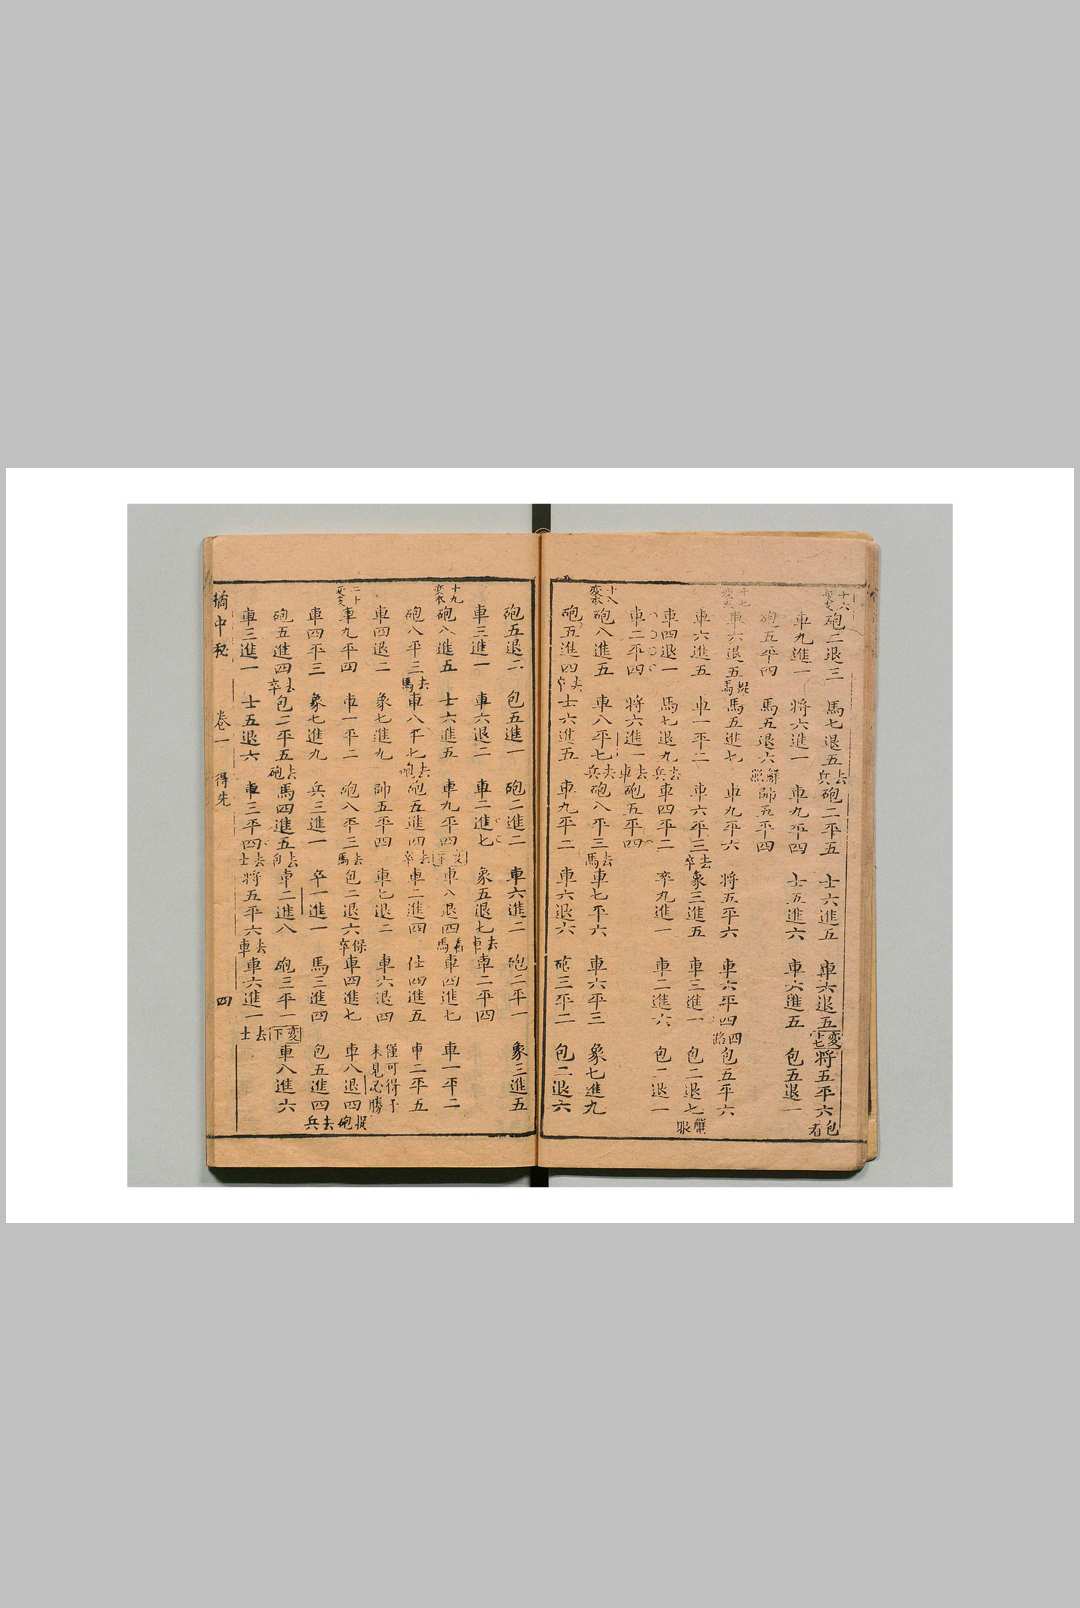 十六変 砲二退三 馬七退五 去兵 砲二平五 士六進五 車六退五 変下七 将五平六 包有
車九進一 将六進一 車九平四 士五進六 車六進五 包五退一
砲五平四 馬五退六 解照 帥五平四
十七変 車六退五 捉馬 馬五進七 車九平六 将五平六 車六平四 四路 包五平六
車六進五 車一平二 車六平三 去卒 象三進五 車三進一 包二退七
車四退一 馬七退九 去兵 車四平二 卒九進一 車二進六 包二退一
車二平四 将六進一 去車 砲五平四
十八変 砲八進五 車八平七 去兵 砲八平三 去馬 車七平六 車六平三 象七進九
砲五進四 去卒 士六進五 車九平二 車六退六 砲三平二 包二退六
砲五退二 包五進一 砲二進二 車六進二 砲二平一 象三進五
車三進一 車六退二 車二進七 象五退七 去車 車二平四
十九変 砲八進五 士六進五 車九平四 変下 車八退四 看馬 車四進七 車一平二
砲八平三 去馬 車八平七 去砲 砲五進四 去卒 車二進四 仕四進五 車二平五
車四退二 象七進九 帥五平四 車七退二 車六退四 僅可得子未見必勝
二十変 車九平四 車一平二 砲八平三 去馬 包二退六 保卒 車四進七 車八退四 捉砲
車四平三 象七進九 兵三進一 卒一進一 馬三進四 包五進四 去兵
砲五進四 去卒 包二平五 去砲 馬四進五 去包 車二進八 砲三平一 変下 車八進六
車三進一 士五退六 車三平四 去士 将五平六 去車 車六進一 去士
橘中秘 卷一 得先 四